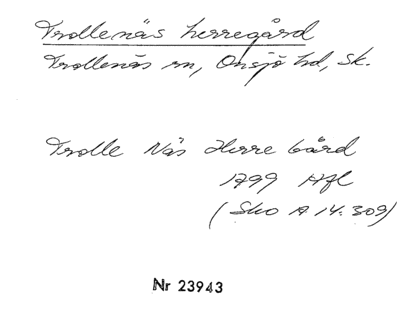 Trollenäs herregård
Trollenäs sn, Onsjö hd, Sk.
Trolle Näs Herre Gård
1799 Hfl
(Sko A 14:309)
Nr 23943